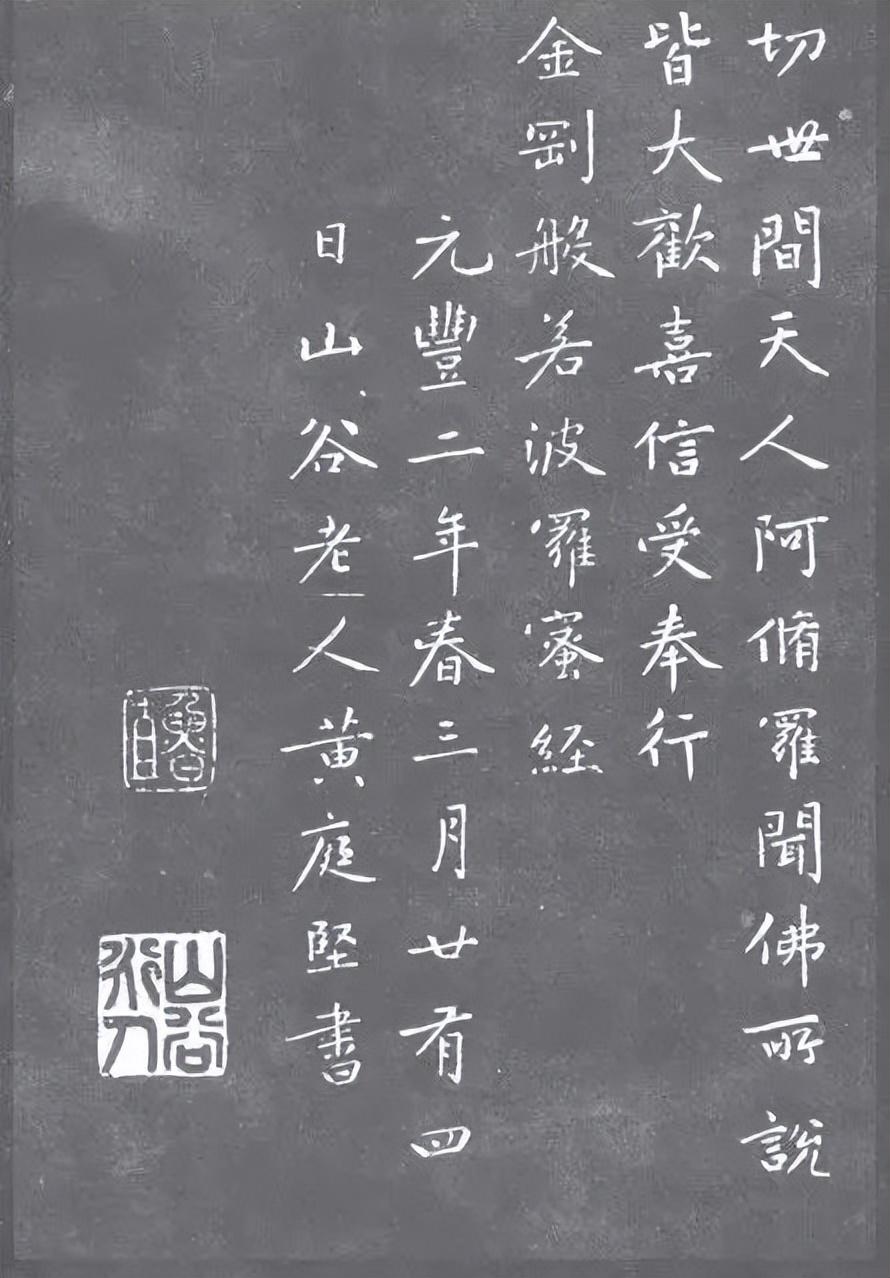 切世間天人阿脩羅聞佛所說
皆大歡喜信受奉行
金剛般若波羅蜜経
元豐二年春三月廿有四
日山谷老人黃庭堅書
魯直
山谷道人